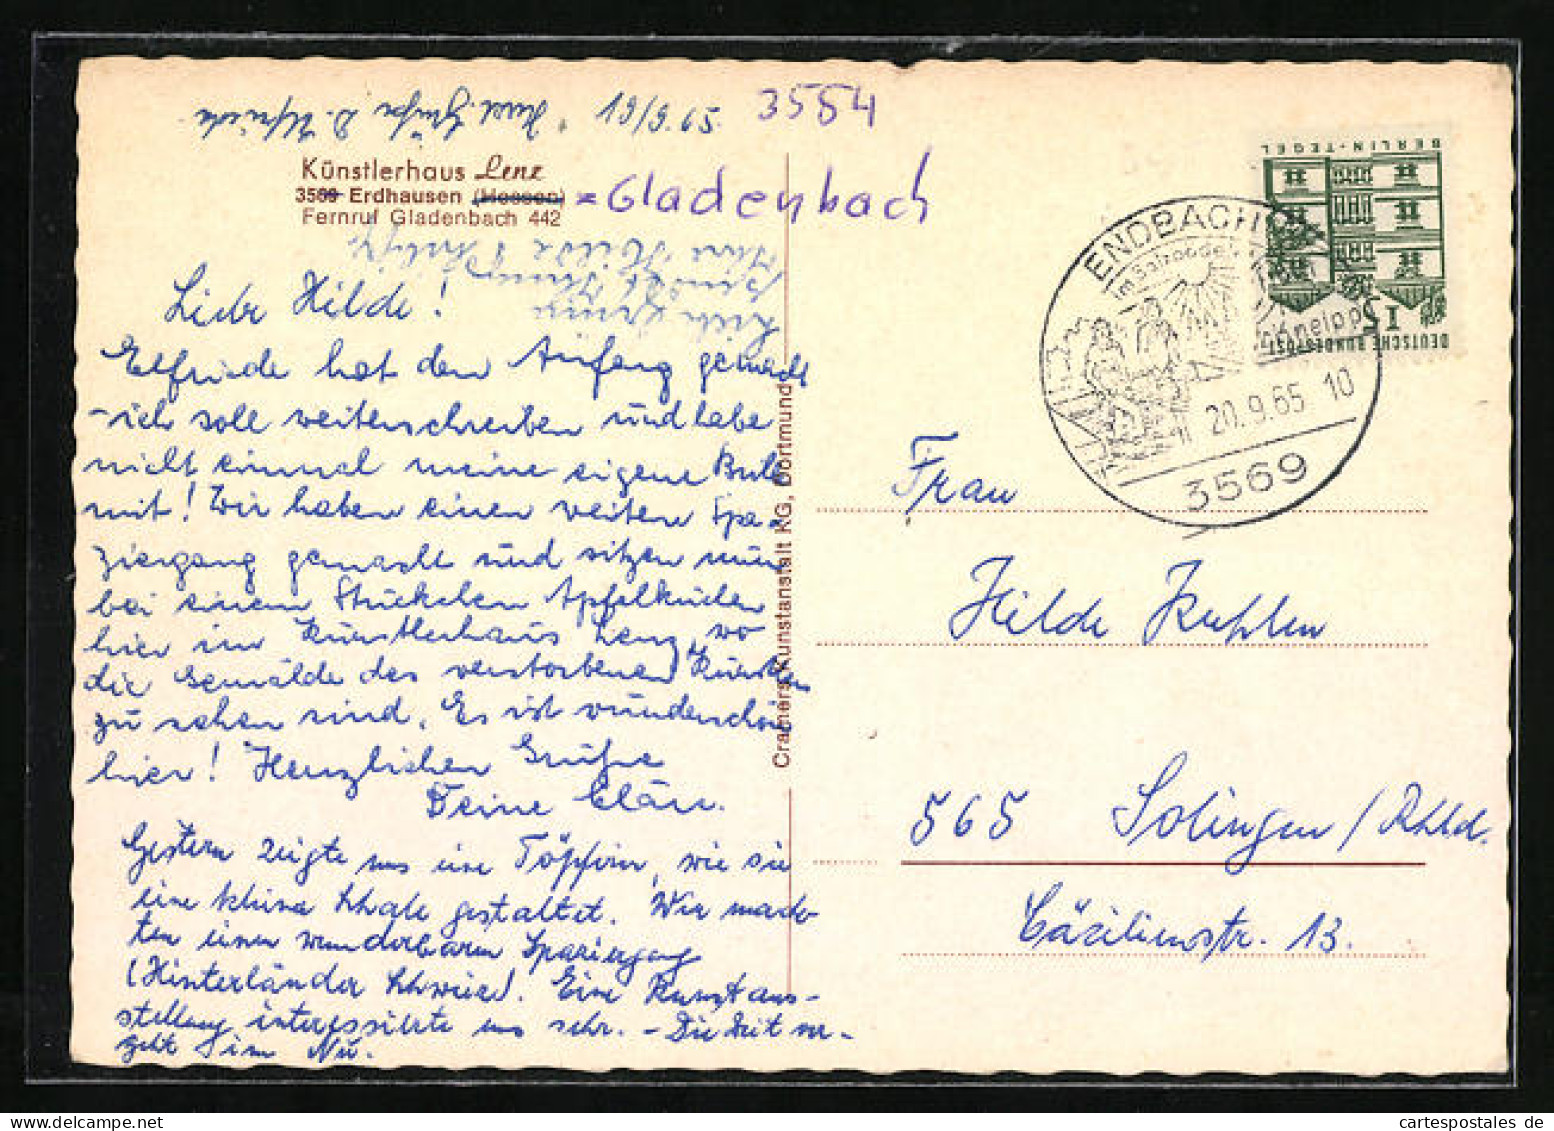 19/9.65.
3554
Künstlerhaus Lenz
3569 Erdhausen (Hessen) = Gladenbach
Fernruf Gladenbach 442
Liebe Hilde!
Elfriede hat den Anfang gemacht
- ich soll weiterschreiben und habe
nicht einmal meine eigene Brille
mit! Wir haben einen weiten Spa-
ziergang gemacht und sitzen nun
bei einem Stückchen Apfelkuchen
hier im Künstlerhaus Lenz, wo
die Gemälde des verstorbenen Künstlers
zu sehen sind. Es ist wunderschön
hier! Herzlichen Grüße
Deine Cläre.
Gestern zeigte uns eine Töpferin, wie sie
eine kleine Schale gestaltet. Wir mach-
ten einen wunderbaren Spaziergang
(Hinterländer Schweiz). Eine Kunstaus-
stellung interessierte uns sehr. - Die Zeit ver-
geht im Nu.
Cramers Kunstanstalt KG, Dortmund
BERLIN-TEGEL
15
DEUTSCHE BUNDESPOST
ENDBACH
Kneipp
20.9.65 10
3569
Frau
Hilde Kuhlen
565 Solingen/Rhld.
Cäcilienstr. 13.
cartespostales de